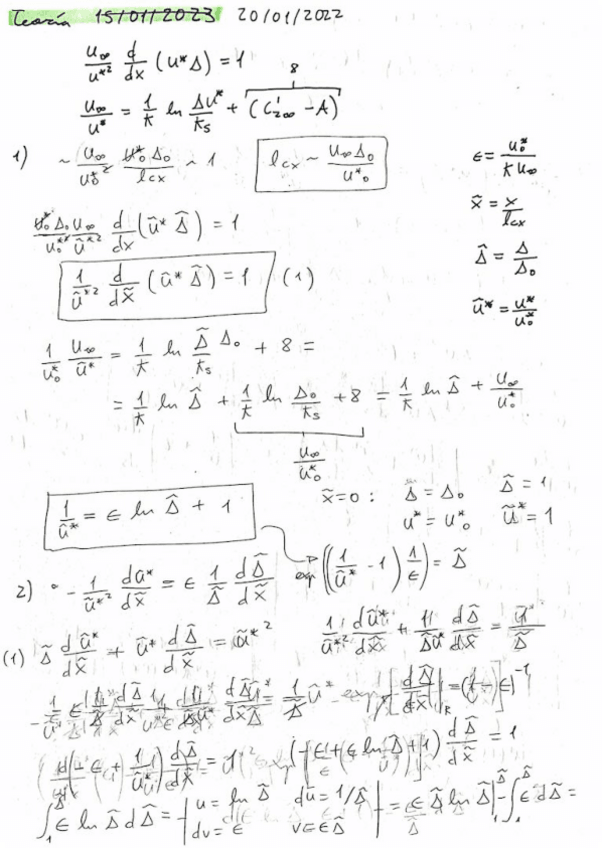 Teoría 15/01/2023 20/01/2022
u∞/u*² d/dx (u* Δ) = 1
u∞/u* = 1/k ln Δu*/ks + (C'₂∞ - A)
8
1) ~ u∞/u₀*² u₀* Δ₀/lcx ~ 1
lcx ~ u∞ Δ₀/u*₀
ϵ = u₀*/k u∞
x̃ = x/lcx
u₀* Δ₀ u∞/u₀*² ũ*² d/dx (ũ* Δ̃) = 1
Δ̃ = Δ/Δ₀
1/ũ*² d/dx̃ (ũ* Δ̃) = 1 (1)
ũ* = u*/u₀*
1/u₀* u∞/ũ* = 1/k ln Δ̃ Δ₀/ks + 8 =
= 1/k ln Δ̃ + 1/k ln Δ₀/ks + 8 = 1/k ln Δ̃ + u∞/u₀*
u∞/u₀*
x̃=0 : Δ = Δ₀ Δ̃ = 1
u* = u*₀ ũ* = 1
1/ũ* = ϵ ln Δ̃ + 1
exp((1/ũ* - 1) 1/ϵ) = Δ̃
2) • - 1/ũ*² dũ*/dx̃ = ϵ 1/Δ̃ dΔ̃/dx̃
(1) Δ̃ dũ*/dx̃ + ũ* dΔ̃/dx̃ = ũ*²
1/ũ*² dũ*/dx̃ + 1/Δ̃u* dΔ̃/dx̃ = 1/Δ̃
(-ϵ + ϵ ln Δ̃ + 1) dΔ̃/dx̃ = 1
∫₁^Δ̃ ϵ ln Δ̃ dΔ̃ = | u = ln Δ̃ du = 1/Δ̃ dv = ϵ v = ϵΔ̃ | = ϵ Δ̃ ln Δ̃ |₁^Δ̃ - ∫₁^Δ̃ ϵ dΔ̃ =